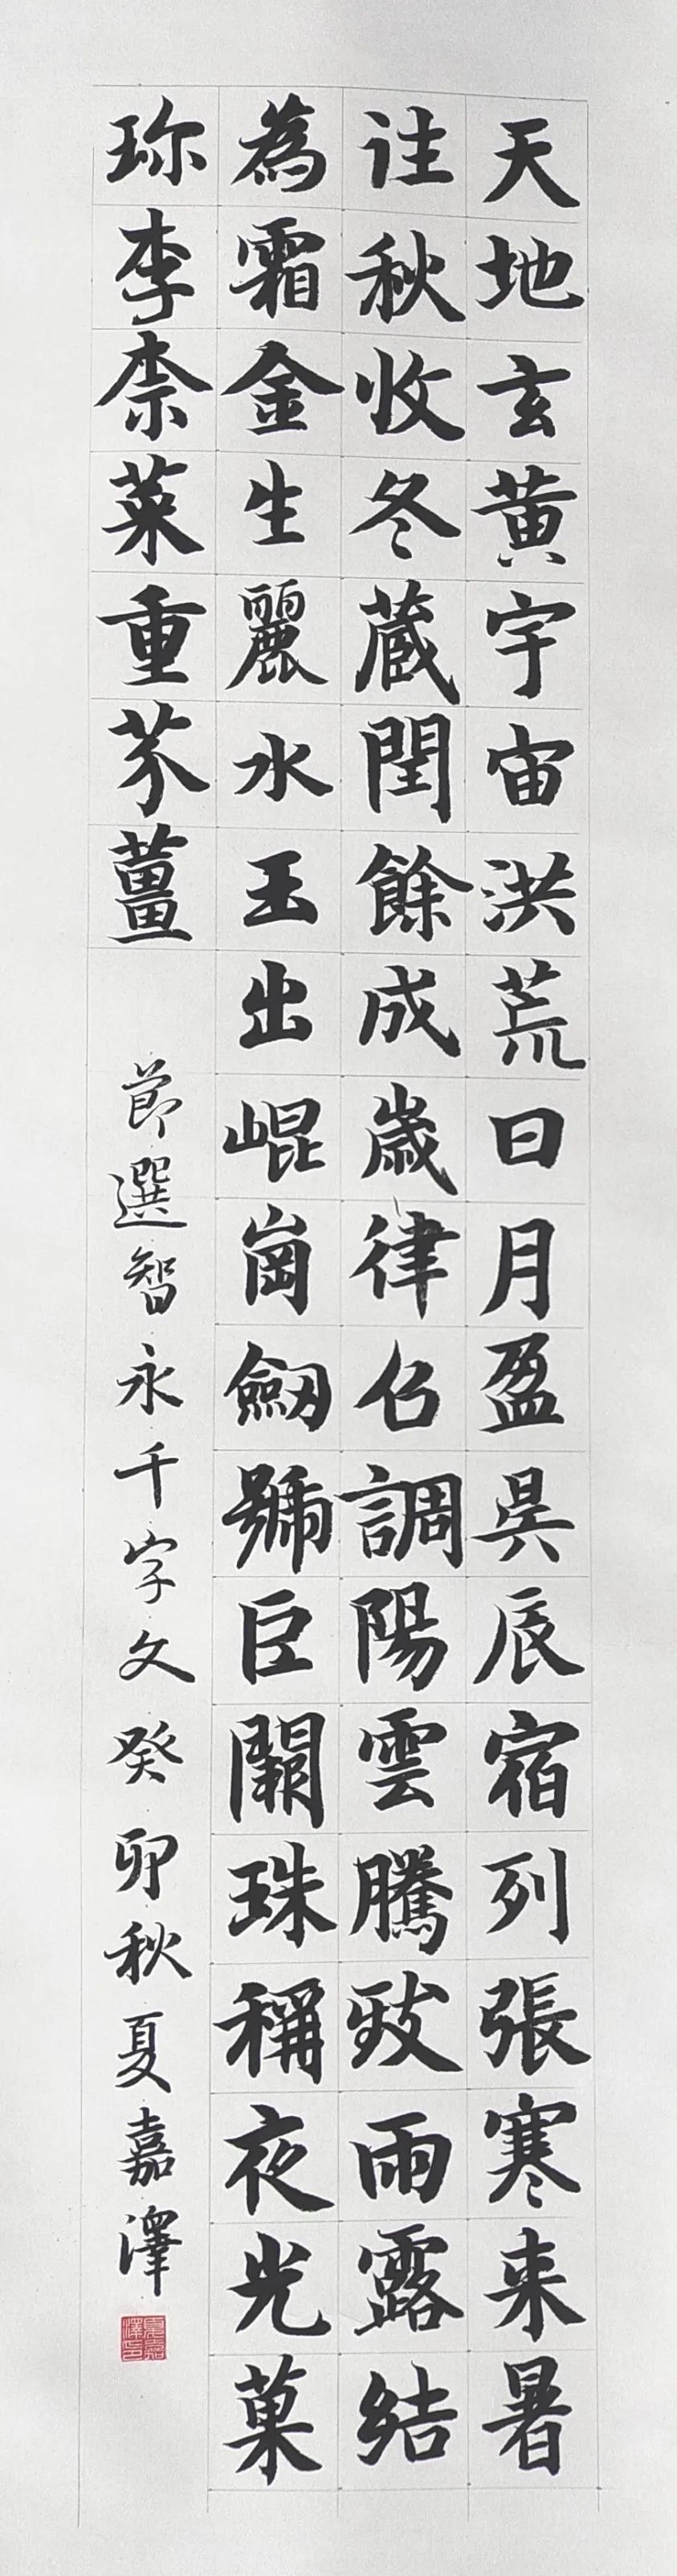 天地玄黃宇宙洪荒日月盈昃辰宿列張寒来暑
往秋收冬蔵閏餘成歲律召調陽雲騰致雨露結
為霜金生麗水玉出崐崗劔號巨闕珠稱夜光菓
珎李柰菜重芥薑
節選智永千字文癸卯秋夏嘉澤
夏嘉澤印